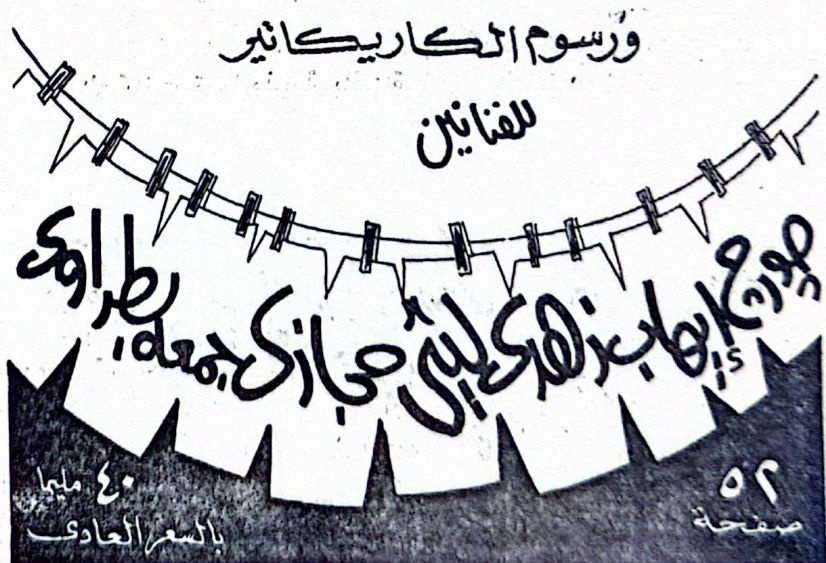 ورسوم الكاريكاتير
للفنانين
چورچ إيهاب زهدى ليثى حجازى جمعه بطراوى
٥٢
صفحة
٤٠ مليما
بالسعر العادى